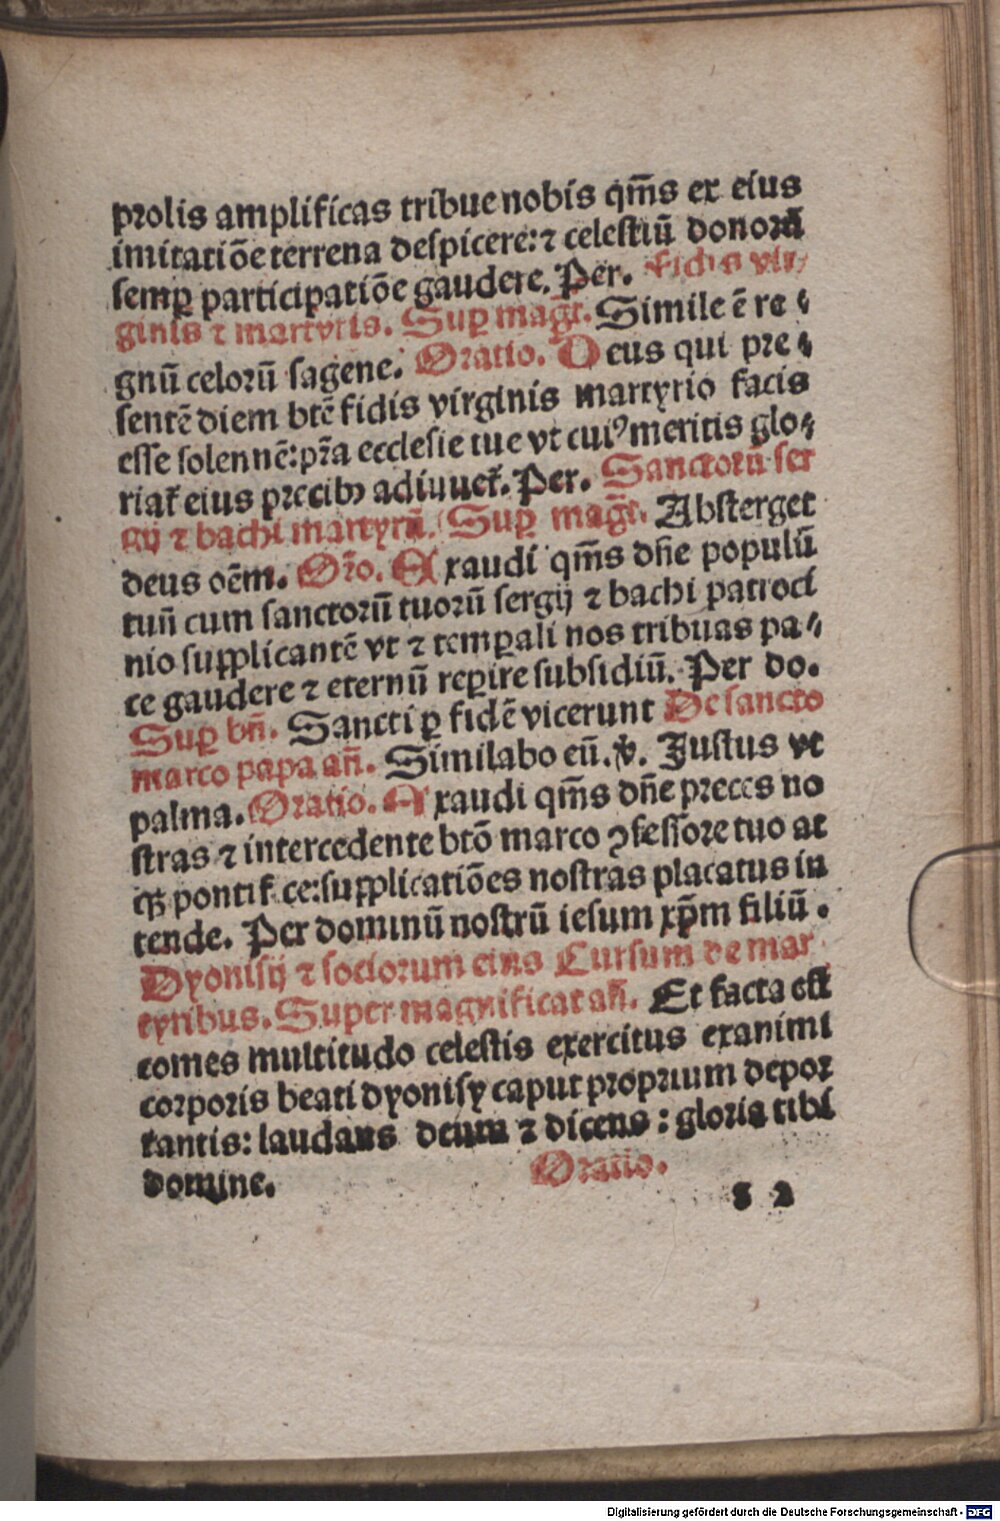 prolis amplificas tribue nobis qm̄s ex eius
imitatiōe terrena despicere: ⁊ celestiū donorū
semꝑ participatiōe gaudere. Per. Fidis vir/
ginis ⁊ martyris. Suꝑ mag̅t. Simile ē re ⸗
gnū celorū sagene. Oratio. Deus qui pre ⸗
sentē diem btē fidis virginis martyrio facis
esse solennē: pr̄a ecclesie tue vt cuiꝰ meritis glo⸗
riat᷑ eius precibꝫ adiuuet᷑. Per. Sanctorū ser
gij ⁊ bachi martyrū. Suꝑ mag̅t. Absterget
deus oēm. Or̄o. Exaudi qm̄s dn̄e populū
tuū cum sanctorū tuorū sergij ⁊ bachi patroci
nio supplicantē vt ⁊ temꝑali nos tribuas pa⸗
ce gaudere ⁊ eternū reꝑire subsidiū. Per do.
Suꝑ bn̄. Sancti ꝑ fidē vicerunt De sancto
marco papa an̄. Similabo eū. ℣. Justus vt
palma. Oratio. Exaudi qm̄s dn̄e preces no
stras ⁊ intercedente btō marco ꝯfessore tuo at
qꝫ pontifice: supplicatiōes nostras placatus in
tende. Per dominū nostrū iesum xp̄m filiū.
Dyonisij ⁊ sociorum eius Cursum de mar
tyribus. Super magnificat an̄. Et facta est
comes multitudo celestis exercitus exanimi
corporis beati dyonisy caput proprium depor
tantis: laudans deum ⁊ dicens: gloria tibi
domine. Oratio.
s 2
Digitalisierung gefördert durch die Deutsche Forschungsgemeinschaft - DFG